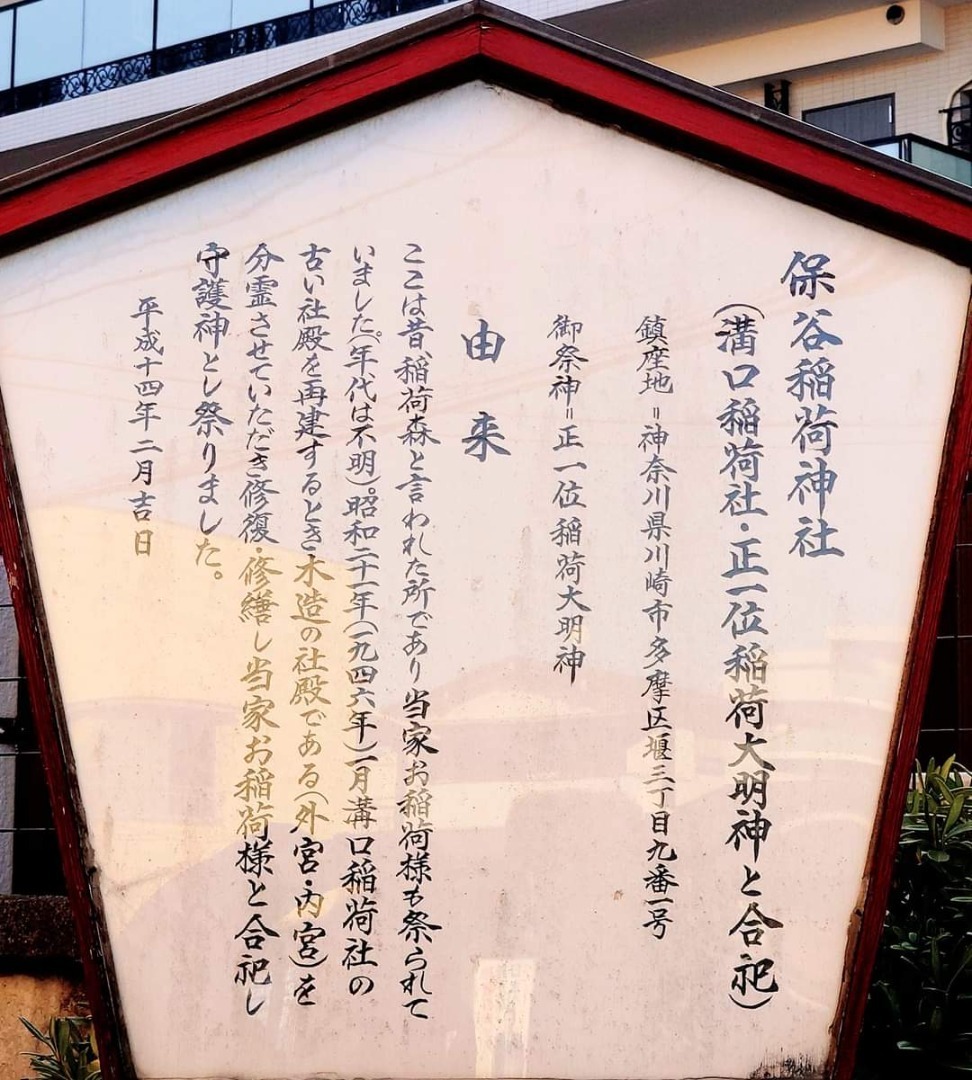 保谷稲荷神社
(溝口稲荷社・正一位稲荷大明神と合祀)
鎮座地=神奈川県川崎市多摩区堰三丁目九番一号
御祭神=正一位稲荷大明神
由来
ここは昔、稲荷森と言われた所であり当家お稲荷様も祭られて
いました。(年代は不明)。昭和二十一年(一九四六年)二月溝口稲荷社の
古い社殿を再建するとき・木造の社殿である(外宮・内宮)を
分霊させていただき修復・修繕し当家お稲荷様と合祀し
守護神とし祭りました。
平成十四年二月吉日